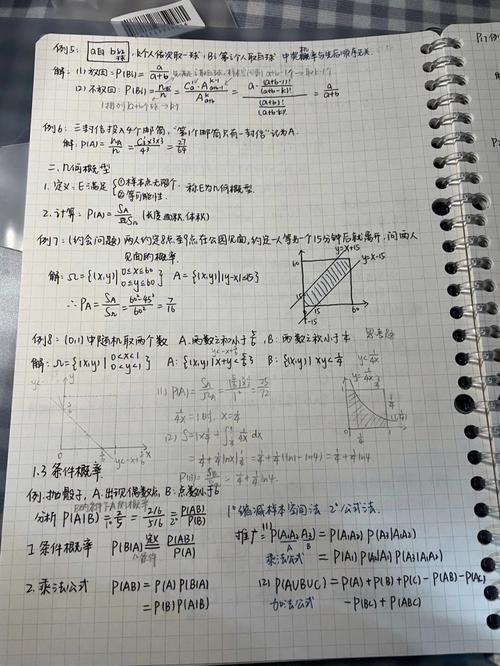 例5: a白 b红球, k个人依次取一球, Bi: 第i个人取白球
解: (1) 放回: P(Bi) = a/(a+b)
(2) 不放回: P(Bi) = nBi/n = Ca^1·A(a+b-1)^(k-1)/A(a+b)^k = a·(a+b-1)!/(a+b-k)! / (a+b)!/(a+b-k)! = a/(a+b)
例6: 三封信投入4个邮筒, "第1个邮筒只有一封信"记为A.
解: P(A) = nA/n = C3^1×3×3/4^3 = 27/64
二、几何概型
1. 定义: E满足 {①样本点无限个. ②等可能性. 称E为几何概型.
2. 计算: P(A) = SA/SΩ (长度, 面积, 体积)
例7: (约会问题) 两人约定8点至9点在公园见面, 约定一人等另一个15分钟后就离开, 问两人
见面的概率.
解: Ω = {(x,y)| 0≤x≤60 0≤y≤60} A = {(x,y)| |y-x|≤15}
y=x+15
y=x-15
60
15
15
60
-15
∴ PA = SA/SΩ = (60²-45²)/60² = 7/16
例8: (0,1)中随机取两个数 A. 两数之和小于6/5, B: 两数之积小于1/4
解: Ω = {(x,y)| 0<x<1 0<y<1} A: {(x,y)| x+y<6/5} B: {(x,y)| xy<1/4}
(1) P(A) = SA/SΩ
1/4x = 1时, x = 1/4
(2) S = 1×1/4 + ∫ 1/4x dx
= 1/4 + 1/4 lnx| = 1/4 + 1/4(ln1 - ln1/4) = 1/4 + 1/4 ln4
P(B) = SB/SΩ = 1/4 + 1/4 ln4
1.3 条件概率
例. 抛骰子, A: 出现偶数点, B: 点数小于6
分析 P(A|B) = 2/5 = 2/6/5/6 = P(AB)/P(B) 1° 缩减样本空间法 2° 公式法.
1. 条件概率 P(B|A) 定义 P(AB)/P(A)
推广: (1) P(A1A2A3) = P(A1A2)P(A3|A1A2)
乘法公式 = P(A1)P(A2|A1)P(A3|A1A2)
2. 乘法公式 P(AB) = P(A)P(B|A)
= P(B)P(A|B)
(2) P(AUBUC) = P(A)+P(B)+P(C)-P(AB)-P(AC)
加法公式 -P(BC)+P(ABC)